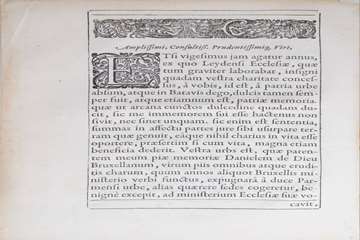 Amplissimi, Consultiss. Prudentissimiq, Viri,
ETsi vigesimus jam agatur annus,
ex quo Leydensi Ecclesiæ, quæ
tum graviter laborabat, insigni
quadam vestra charitate conces-
sus, à vobis, id est, à patria urbe
absum, atque in Batavis dego, dulcis tamen sem-
per fuit, atque etiamnum est, patriæ memoria.
quæ ut arcana cunctos dulcedine quadam du-
cit, sic me immemorem sui esse hactenus non
sivit, nec sinet unquam. sic enim est sententia,
summas in affectu partes jure sibi usurpare ter-
ram quæ genuit, eaque nihil charius in vita esse
oportere, præsertim si cum vita, magna etiam
beneficia dederit. Vestra urbs est, quæ paren-
tem meum piæ memoriæ Danielem de Dieu
Bruxellanum, virum puis omnibus atque erudi-
tis charum, quum annos aliquot Bruxellis mi-
nisterio verbi functus, expugnarâ a duce Par-
mensi urbe, alias quærere sedes cogeretur, be-
nignè excepit, ad ministerium Ecclesiæ suæ vo-
cavit,